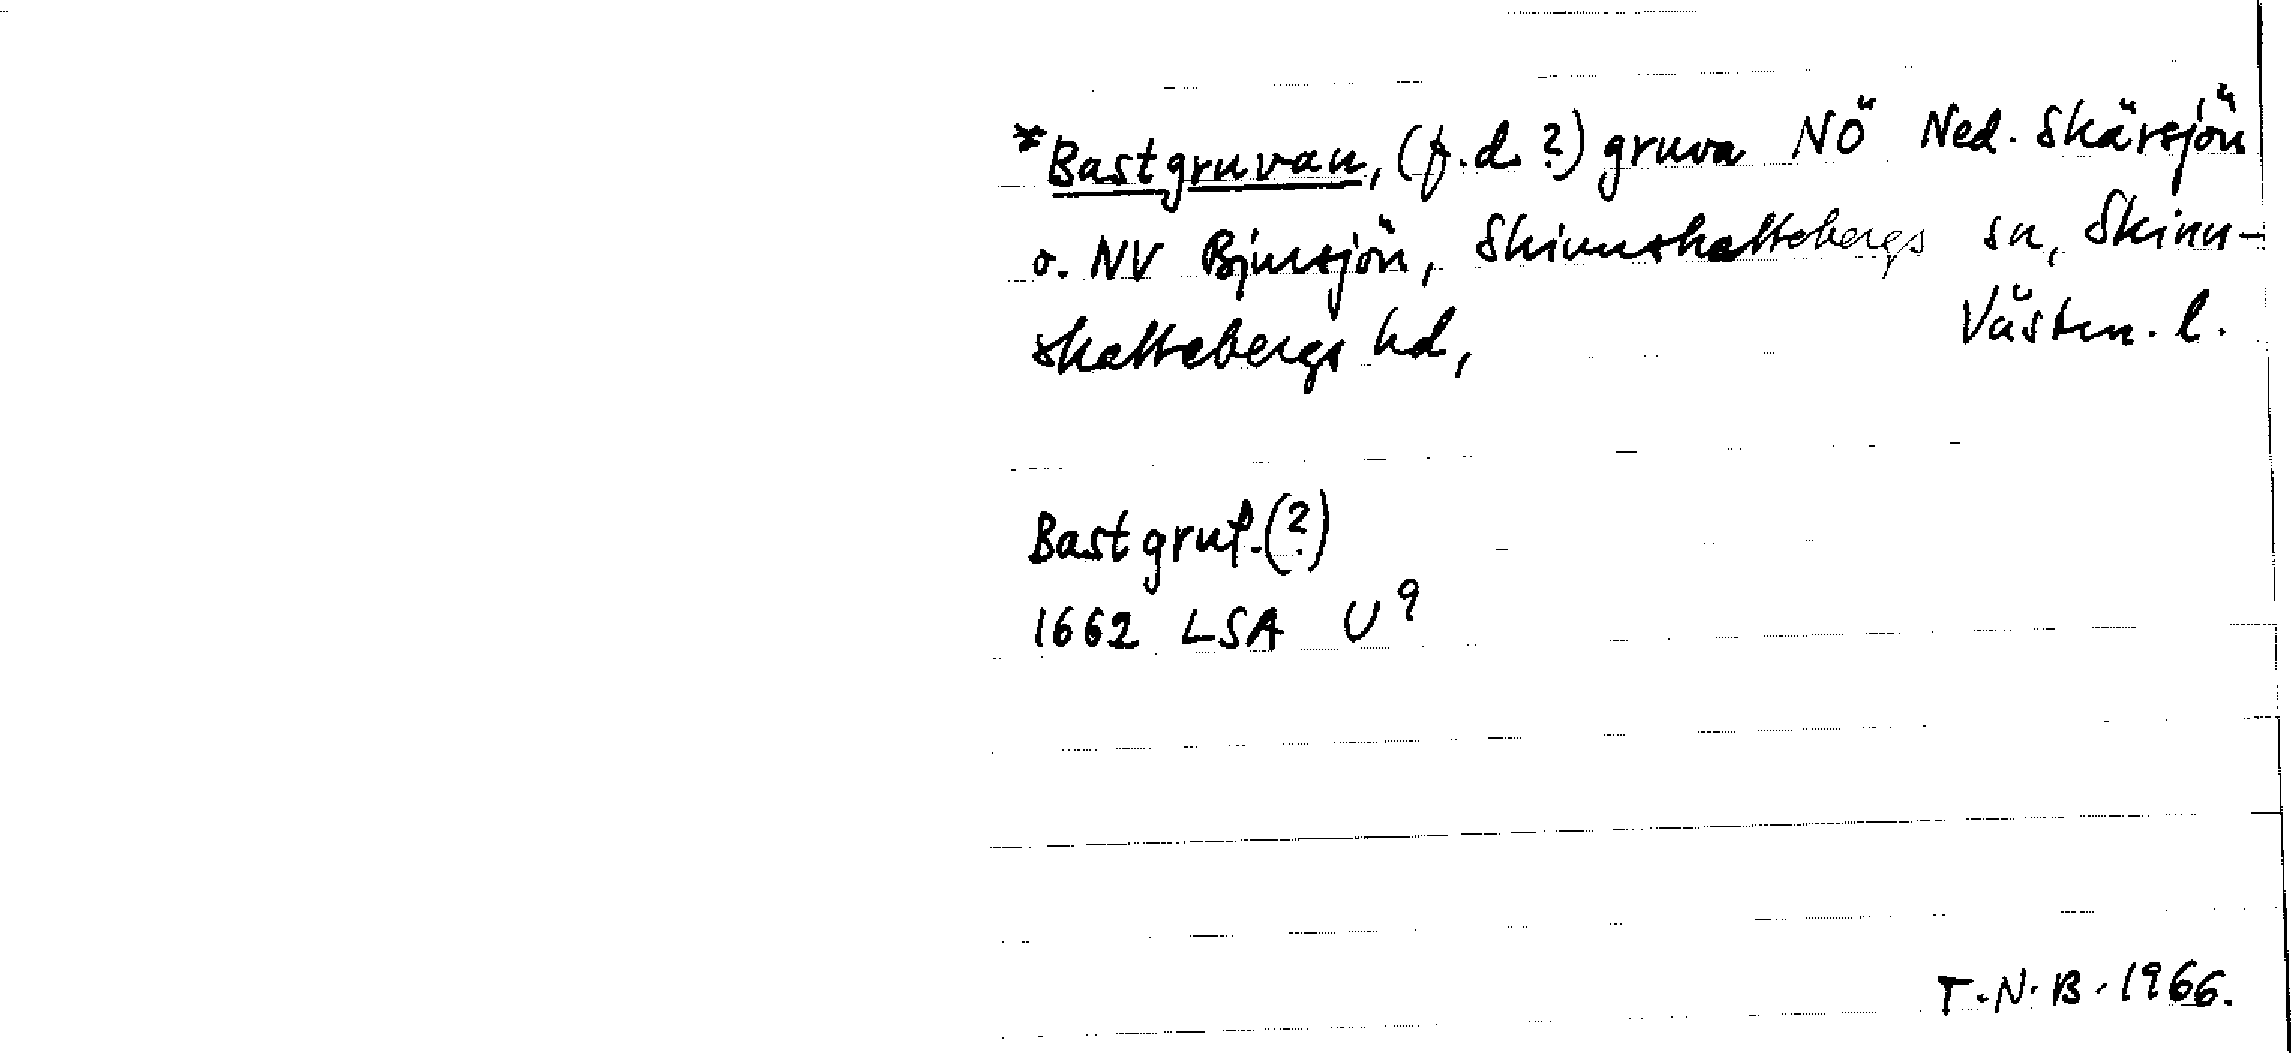 *Bastgruvan, (f.d.?) gruva NÖ Ned. Skärsjön
o. NV Bjursjön, Skinnskattebergs sn, Skinn-
skattebergs hd, Västm. l.
Bastgruf.(?)
1662 LSA U⁹
T.N.B. 1966.